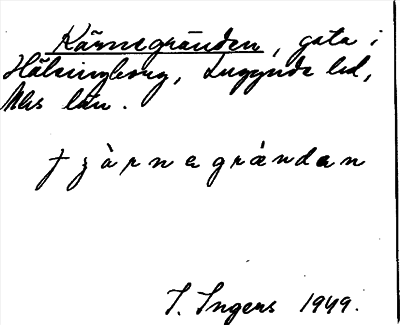 Kärnegränden, gata i
Hälsingborg, Luggude hd,
Mhs län.
tjärnegränden
I. Ingers 1949.